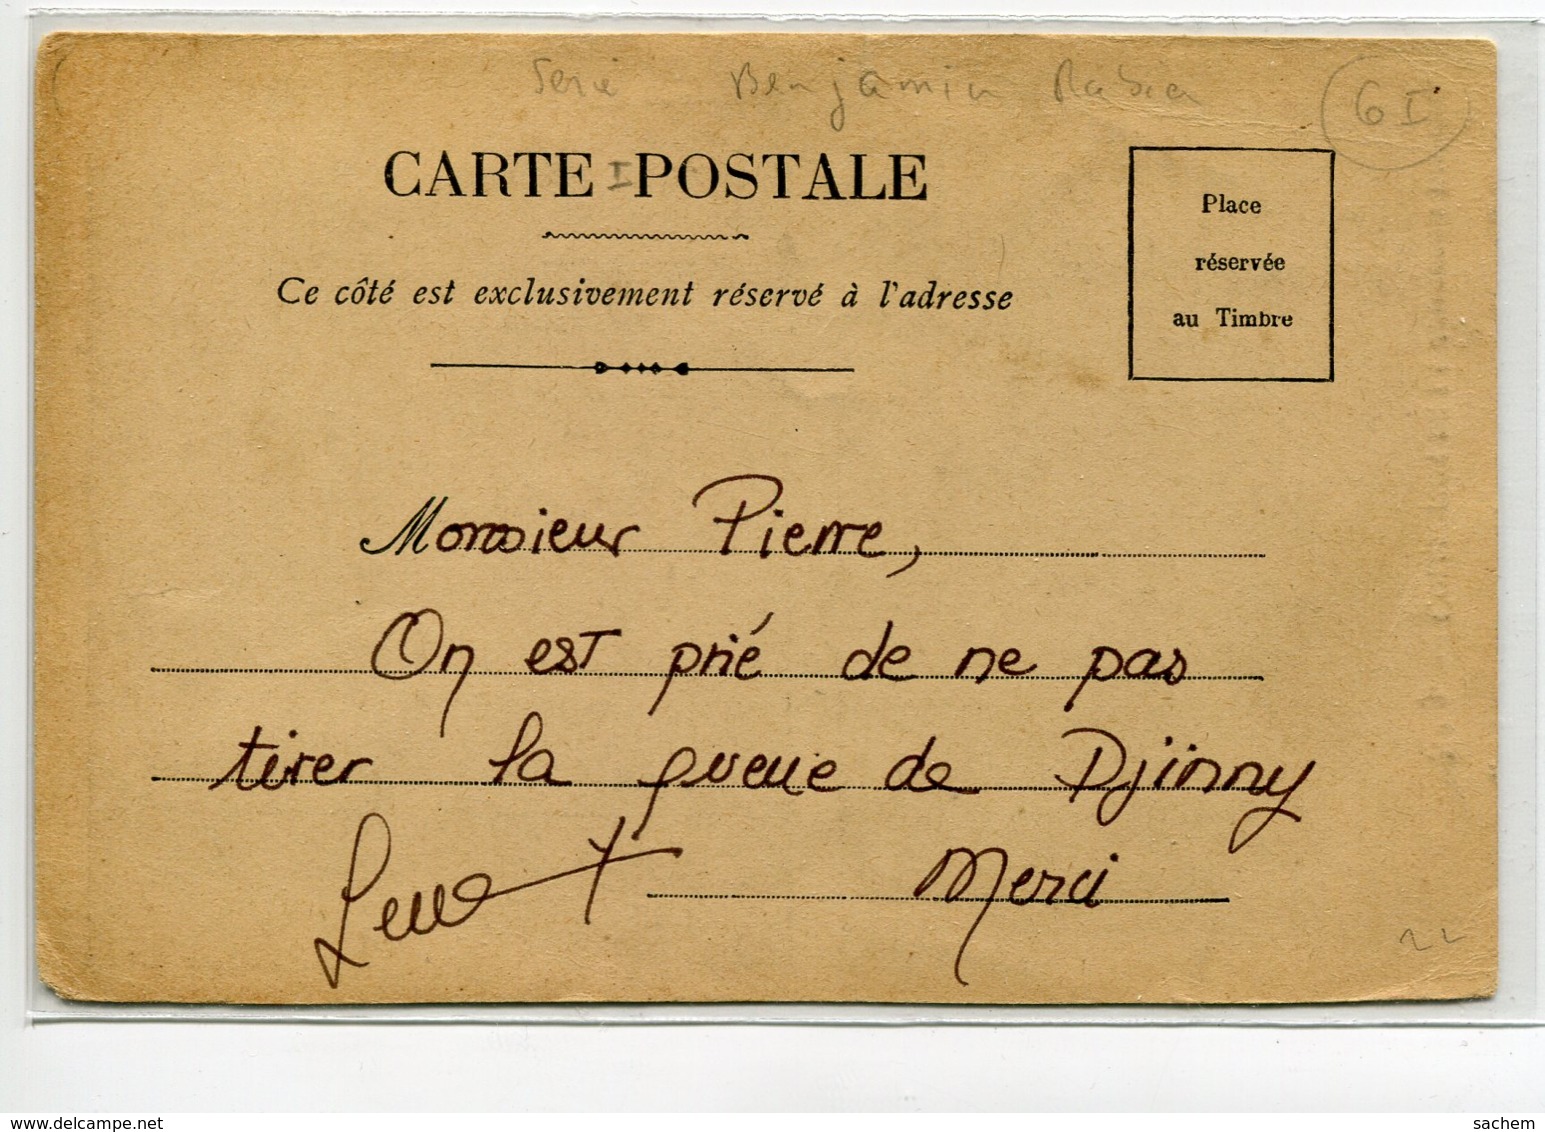 Serie Benjamin Rabier
6 I
CARTE POSTALE
Ce côté est exclusivement réservé à l'adresse
Place
réservée
au Timbre
Monsieur Pierre,
On est prié de ne pas
tirer la queue de Djinny
Merci
www.delcampe.net
sachem